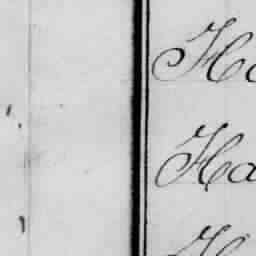 Ha
Ha
H